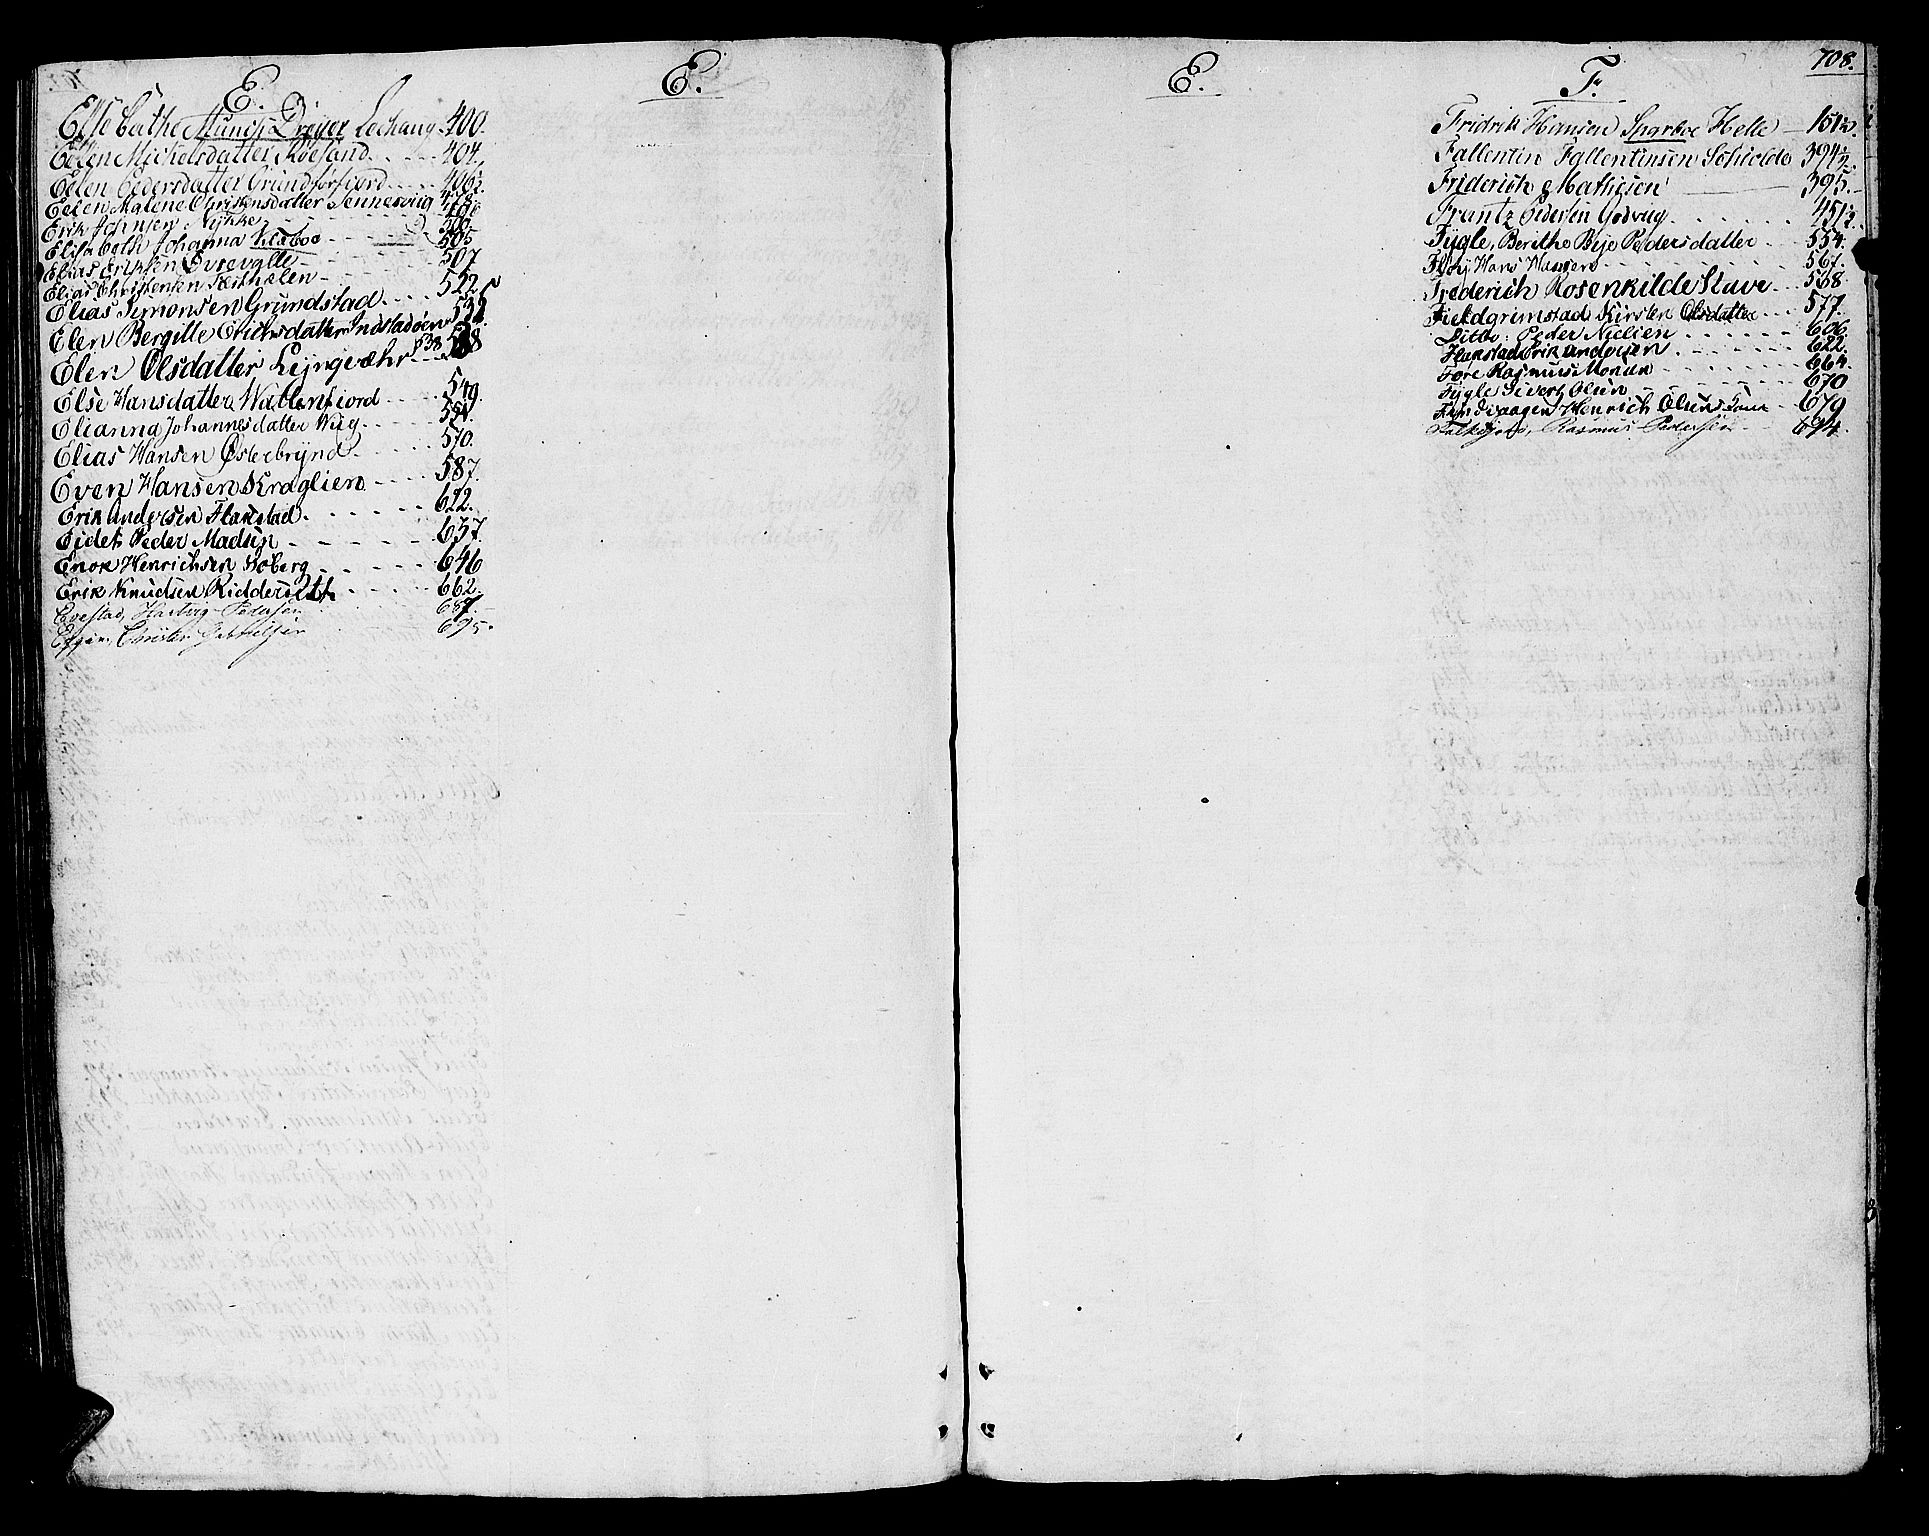 E.
Else Cathe Munch Dreyer Lechang 400.
Elen Mickelsdatter Røesand 404.
Elen Pedersdatter Grundførfiord 406½
Elen Malene Christensdatter Sennesviig 478.
Erik Johnsen Nykke
Elisabeth Johanna 505
Elias Eriksen Øvrevalle 507
Elias Christensen
Elias Simonsen Grundstad 522
Elen Bergitte Erichsdatter Indstadøen 532
Elen Olsdatter Lyngvæhr 538
Else Hansdatter Watterfiord 549.
Elianna Johannesdatter Wiig 551.
Elias Hansen Østerbrynd 570.
Even Hansen Kraglien 587.
Erik Andersen Flakstad 622.
Eidet Peder Madsen 637.
Enok Henrichsen Soberg 646
Erik Knudsen 662.
Evestad, Hartvig Pedersen 687.
Christen Gabrielsen 695.
E.
E.
708.
F.
Fridrik Hansen Sparboe Helle 151½
Fallentin Fallentinsen Schiolde 394½
Friderich Mathiesen 395.
Frantz Pedersen Godvag 451½
Fygle, Berithe Beje Pedersdatter 554.
Hans Hansen 567.
Frederich Rosenkilde Stave 568.
Fieldgrimstad Kirsten Olsdatter 577.
Ditto: Peder Nielsen 606
Flakstad Erik Andersen 622.
Fore Rasmus Monsen 664.
Fygle Sivert Olsen 670
Henrich Olsens 679
Rasmus Pedersen 694.